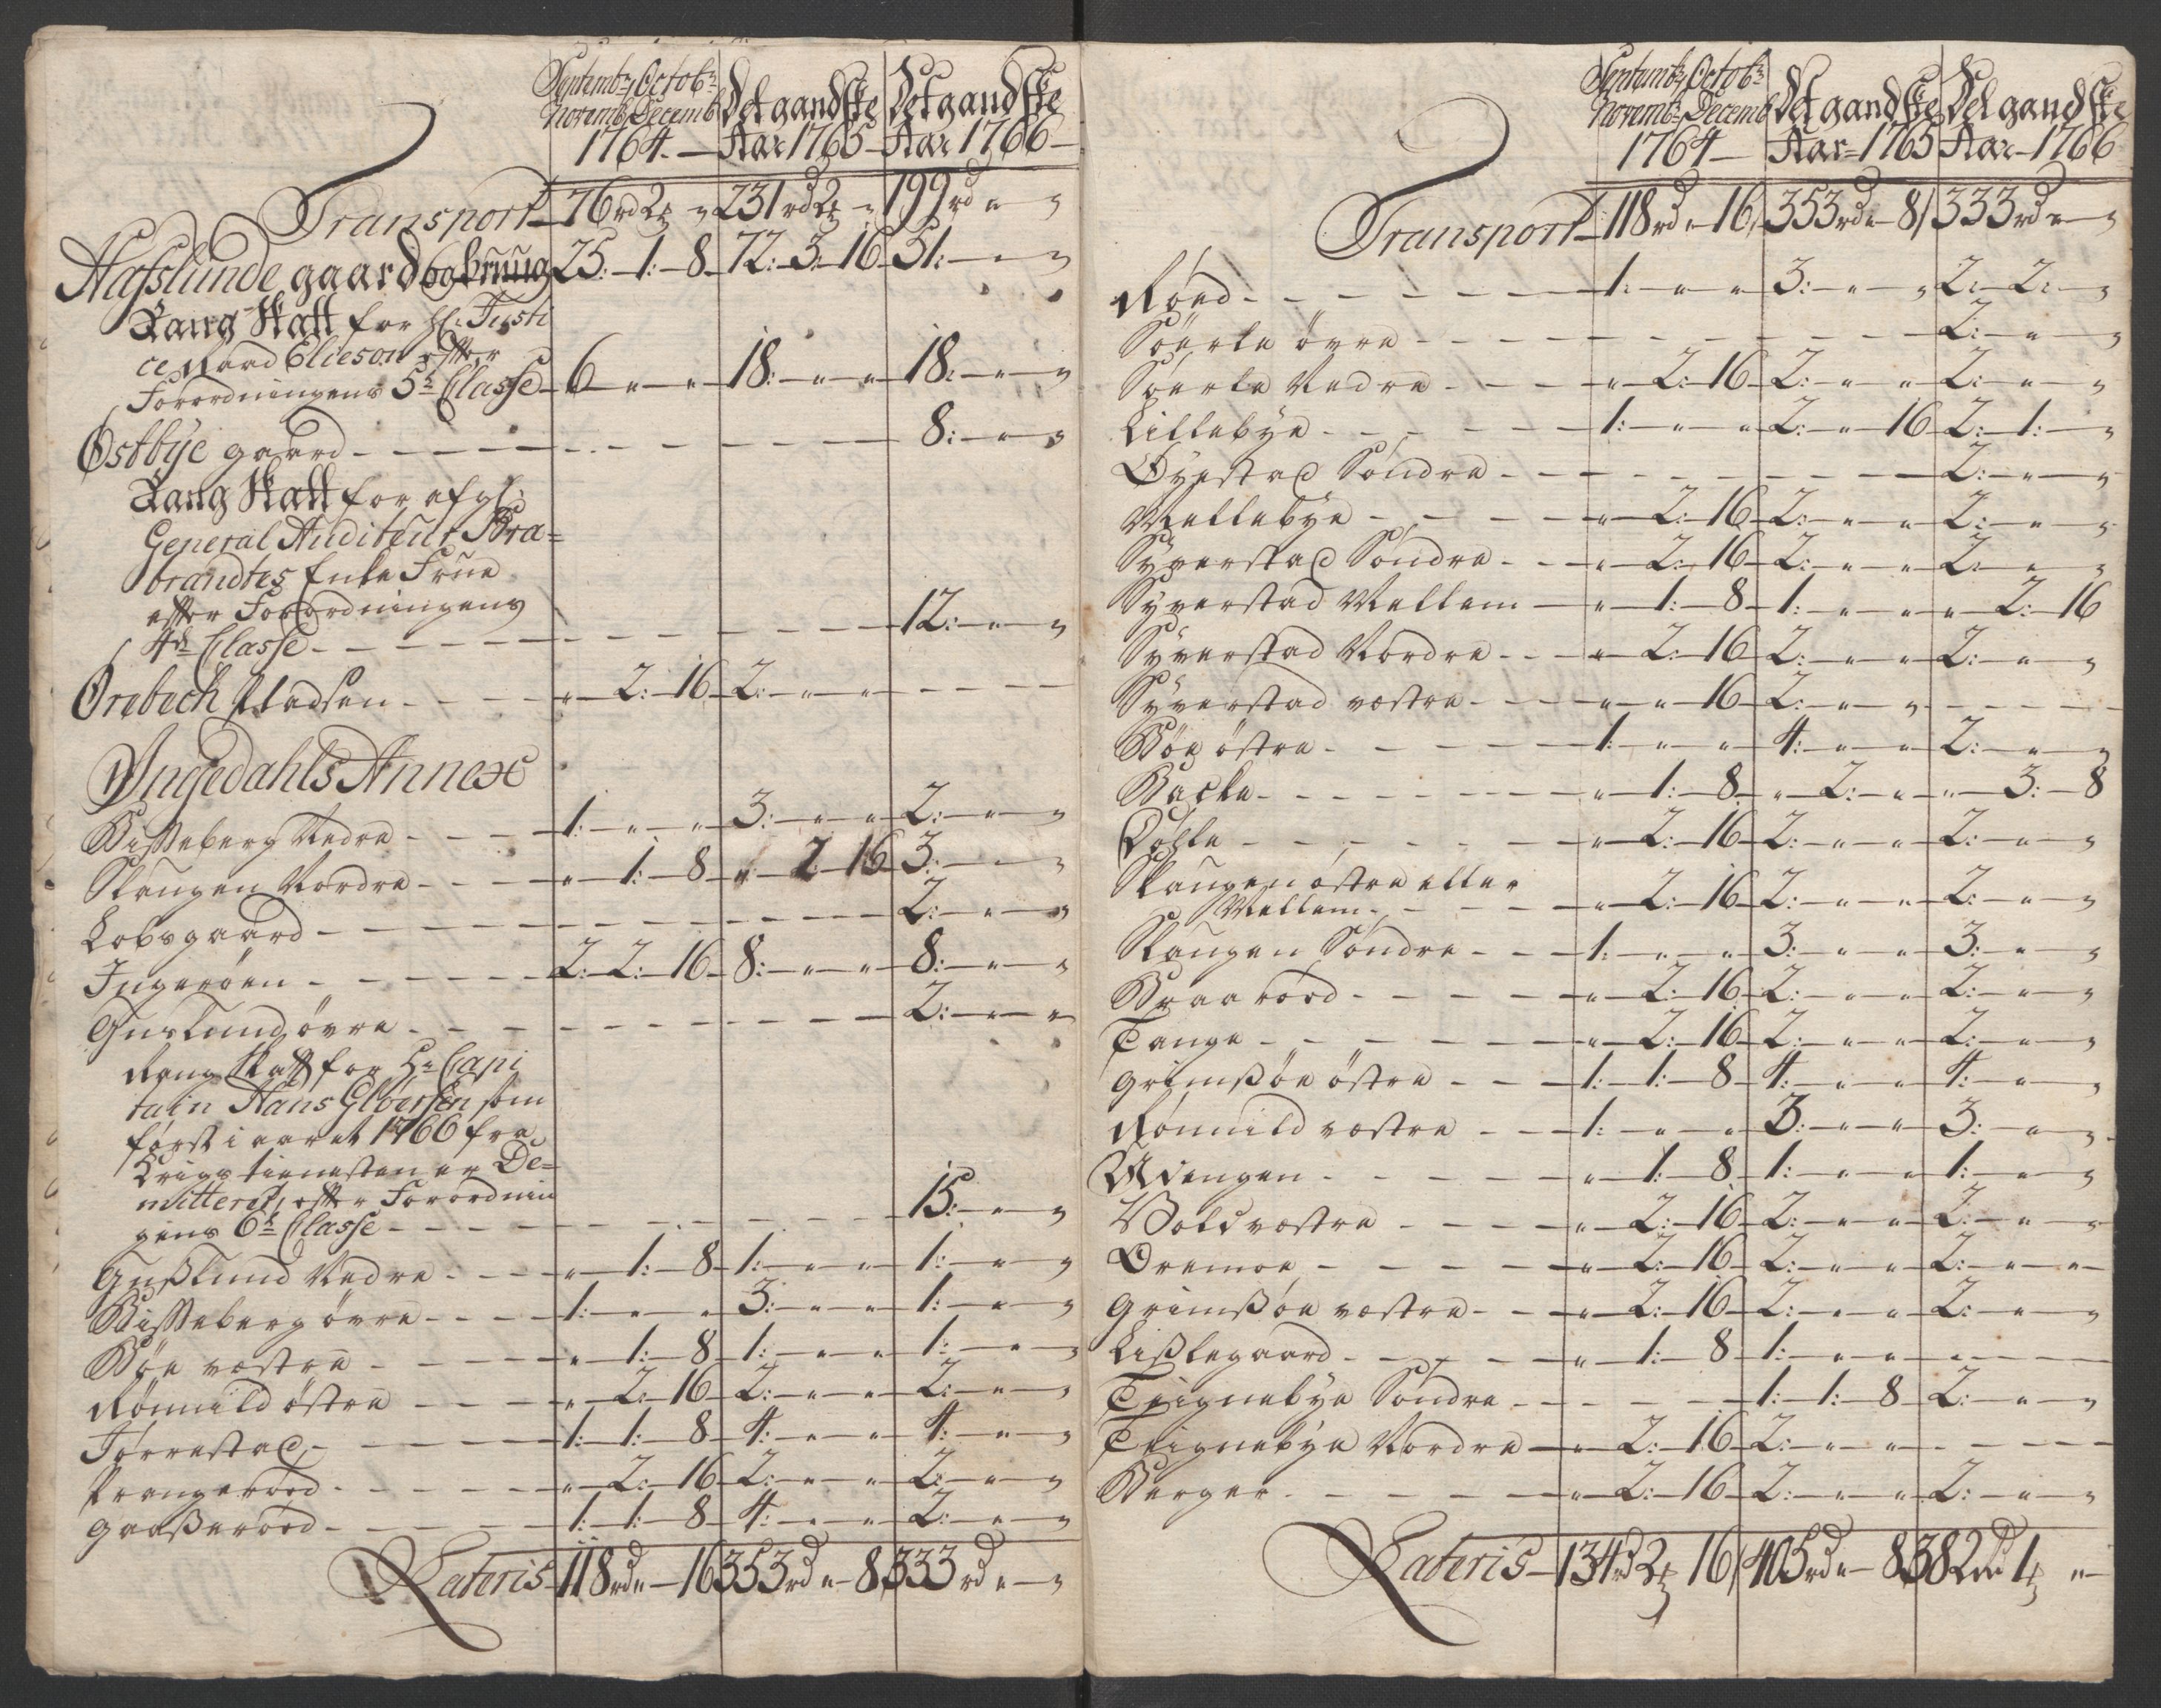 Septembr Octobr
Novembr Decembr
1764. — Det gandske Aar 1765 — Det gandske Aar 1766 —
Transport — 76 rd 2 " 231 rd 2 " 199 rd " "
Hafslunde gaard og bruug 25:—1:—8 — 72:—3:—16 — 51:—"—"
Rang Skatt for Hr: Justi
ce Raad Elieson efter
Forordningens 5te Classe — 6 "—" — 18:—"—" — 18:—"—"
Østbye gaard - - - - - 8:—"—"
Rang Skatt for afgl:
General Auditeur Bra=
brandtes Enke Frue
efter Forordningens
4de Classe - - - - - 12:—"—"
Orebech Pladsen - - - "—2:—16 — 2:—"—" - - -
Ingedahls Annex
Bisseberg Nedre - - - 1:—"—" — 3:—"—" — 2:—"—"
Skaugen Nordre - - - "—1:—8 — "—2—16 — 3:—"—"
Lobsgaard - - - - - 2:—"—"
Ingerøen - - - - 2:—2:—16 — 8:—"—" — 8:—"—"
Guslund øvre - - - - - 2:—"—"
Rang Skatt for Hr Capi
tain Hans Glöersen som
først i aaret 1766 fra
Krigs tienesten er De=
mitteret, efter Forordnin
gens 6te Classe - - - - 15:—"—"
Gusslund Nedre - - - "—1:—8 — 1:—"—" — 1:—"—"
Bisseberg øvre - - - 1:—"—" — 3:—"—" — 1:—"—"
Bøe vestre - - - "—1:—8 — 1:—"—" — 1:—"—"
Rønnild østre - - - "—2:—16 — 2:—"—" — 2:—"—"
Torrestad - - - 1:—1:—8 — 4:—"—" — 4:—"—"
Prangerød - - - "—2:—16 — 2:—"—" — 2:—"—"
Gaasserød - - - 1:—1:—8 — 4:—"—" — 2:—"—"
Lateris — 118 rd "—16 353 rd "—8 333 rd "—"
Septembr Octobr
Novembr Decembr
1764 — Det gandske Aar 1765 Det gandske Aar 1766
Transport — 118 rd "—16 353 rd "—8 333 rd "—"
Røed - - - - 1:—"—" — 3:—"—" — 2:—2:—"
Søerke øvre - - - - - 2:—"—"
Søerke Nedre - - - "—2:—16 — 2:—"—" — 2:—"—"
Lillebye - - - 1:—"—" — 2:—"—16 — 2:—1:—"
Øyestad Søndre - - - - - 2:—"—"
Mellebye - - - "—2:—16 — 2:—"—" — 2:—"—"
Syverstad Søndre - - - "—2:—16 — 2:—"—" — 2:—"—"
Syverstad Mellem — "—1:—8 — 1:—"—" — "—2:—16
Syverstad Nordre - - - "—2:—16 — 2:—"—" — 2:—"—"
Syverstad vestre - - - "—"—16 — 2:—"—" - - -
Bøe østre - - - 1:—"—" — 4:—"—" — 2:—"—"
Backe - - - "—1:—8 — "—2:—" — "—3:—8
Dohle - - - "—2:—16 — 2:—"—" — 2:—"—"
Skaugen østre eller
Mellem - - - "—2:—16 — 2:—"—" — 2:—"—"
Skaugen Søndre - - - 1:—"—" — 3:—"—" — 3:—"—"
Braarød - - - "—2:—16 — 2:—"—" — 2:—"—"
Tange - - - "—2:—16 — 2:—"—" — 2:—"—"
Grimssøe østre - - - 1:—1:—8 — 4:—"—" — 4:—"—"
Rønnild vestre - - - 1:—"—" — 3:—"—" — 3:—"—"
Wiengen - - - "—1:—8 — 1:—"—" — 1:—"—"
Bold vestre - - - "—2:—16 — 2:—"—" — 2:—"—"
Oremoe - - - "—2:—16 — 2:—"—" — 2:—"—"
Grimssøe vestre - - - "—2:—16 — 2:—"—" — 2:—"—"
Lisslegaard - - - "—1:—8 — 1:—"—" - - -
Teignebye Søndre - - - 1:—1:—8 — 2:—"—"
Teignebye Nordre — "—2:—16 — 2:—"—" - - -
Berger - - - "—2:—16 — 2:—"—" — 2:—"—"
Lateris — 134 rd 2 16 405 rd "—8 382 rd 1 "